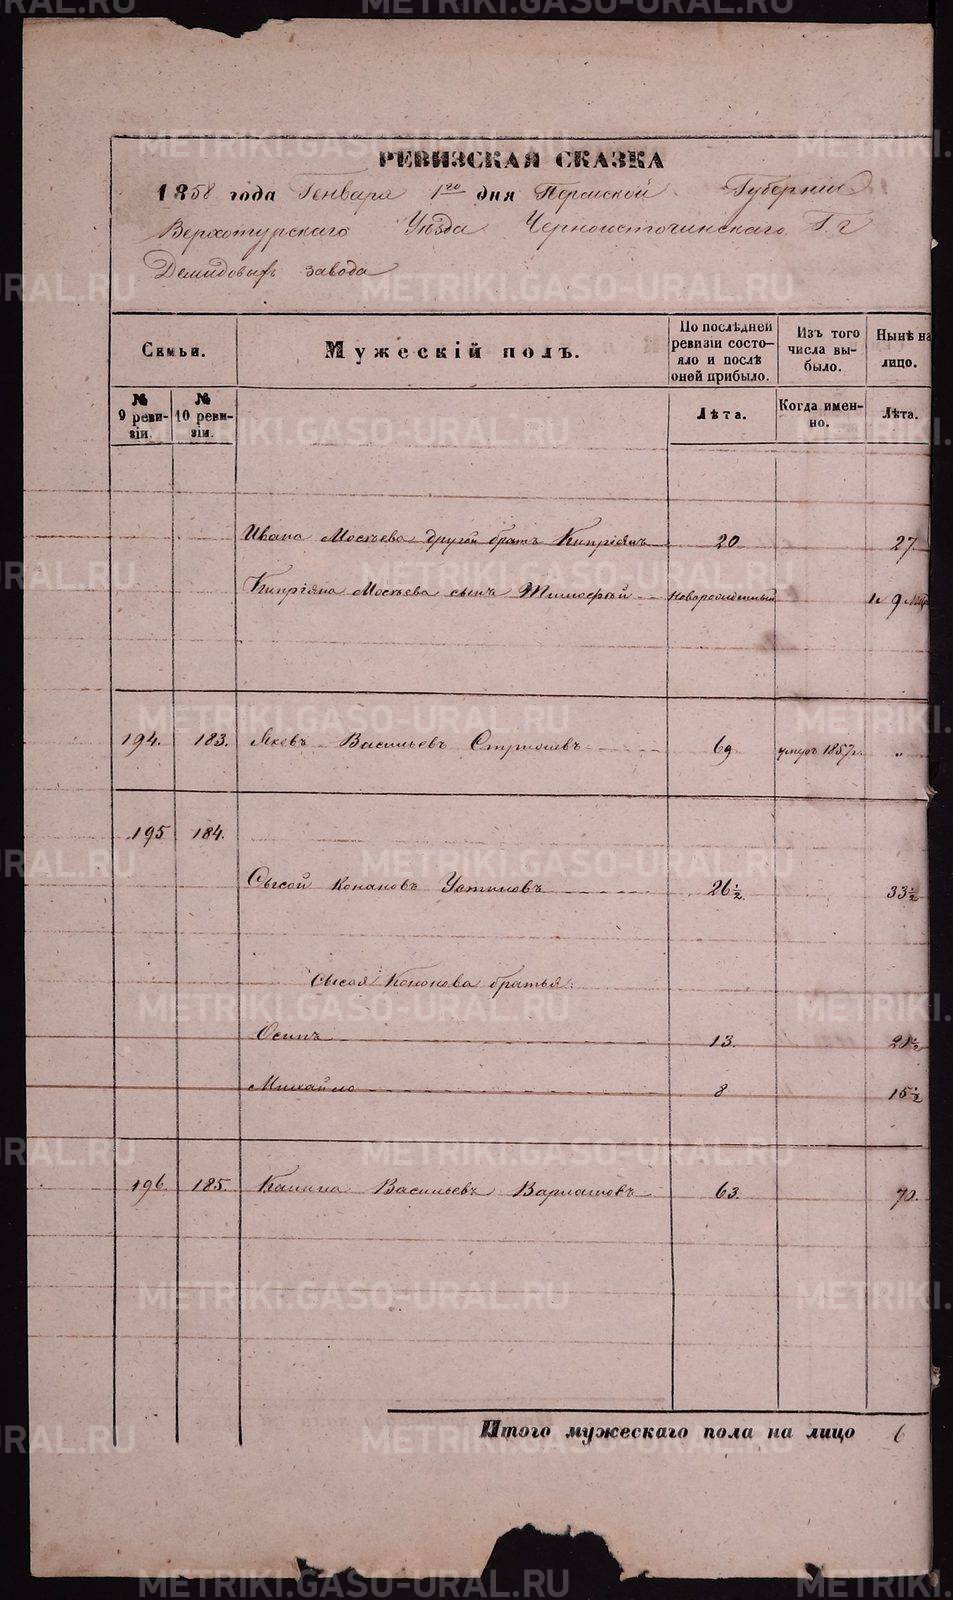 РЕВИЗСКАЯ СКАЗКА
1858 года Генваря 1го дня Пермской Губернии
Верхотурскаго Уѣзда Черноисточинскаго Г.г
Демидовыхъ завода
Семьи.
Мужескій полъ.
По послѣдней ревизіи состояло и послѣ оней прибыло.
Изъ того числа выбыло.
Нынѣ на лицо.
№ 9 ревизіи.
№ 10 ревизіи.
Лѣта.
Когда именно.
Лѣта.
Ивана Мосѣева другой братъ Кипріянъ 20 27.
Кипріяна Мосѣева сынъ Тимофей новорожденный 9
194. 183. Яковъ Васильевъ 69 умеръ 1857г. "
195 184.
Сысой Конановъ Устиновъ 26½ 33½
Сысоя Кононова братья:
Осипъ 13. 21½
Михайло 8 15½
196 185. Васильевъ 63. 70.
Итого мужескаго пола на лицо 6
METRIKI.GASO-URAL.RU